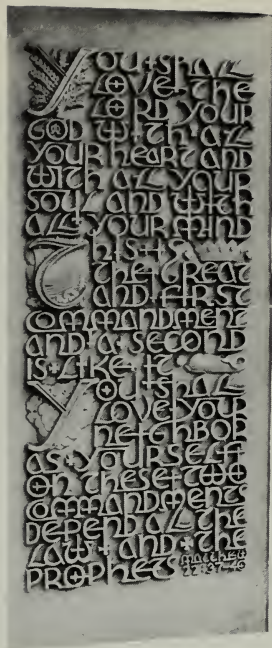 YOU SHALL
LOVE THE
LORD YOUR
GOD WITH ALL
YOUR HEART AND
WITH ALL YOUR
SOUL AND WITH
ALL YOUR MIND
THIS IS
THE GREAT
AND FIRST
COMMANDMENT
AND A SECOND
IS LIKE IT
YOU SHALL
LOVE YOUR
NEIGHBOR
AS YOURSELF
ON THESE TWO
COMMANDMENTS
DEPEND ALL THE
LAW AND THE
PROPHETS MATTHEW
22 37-40